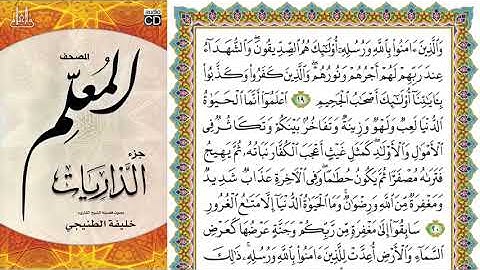 audio CD
المصحف
المعلم
جزء
الذاريات
بصوت فضيلة الشيخ القارئ
خليفة الطنيجي
وَالَّذِينَ ءَامَنُوا۟ بِٱللَّهِ وَرُسُلِهِۦٓ أُو۟لَٰٓئِكَ هُمُ ٱلصِّدِّيقُونَ ۖ وَٱلشُّهَدَآءُ
عِندَ رَبِّهِمْ لَهُمْ أَجْرُهُمْ وَنُورُهُمْ ۖ وَٱلَّذِينَ كَفَرُوا۟ وَكَذَّبُوا۟
بِـَٔايَٰتِنَآ أُو۟لَٰٓئِكَ أَصْحَٰبُ ٱلْجَحِيمِ ١٩ ٱعْلَمُوٓا۟ أَنَّمَا ٱلْحَيَوٰةُ
ٱلدُّنْيَا لَعِبٌ وَلَهْوٌ وَزِينَةٌ وَتَفَاخُرٌۢ بَيْنَكُمْ وَتَكَاثُرٌ فِى
ٱلْأَمْوَٰلِ وَٱلْأَوْلَٰدِ ۖ كَمَثَلِ غَيْثٍ أَعْجَبَ ٱلْكُفَّارَ نَبَاتُهُۥ ثُمَّ يَهِيجُ
فَتَرَىٰهُ مُصْفَرًّا ثُمَّ يَكُونُ حُطَٰمًا ۖ وَفِى ٱلْـَٔاخِرَةِ عَذَابٌ شَدِيدٌ
وَمَغْفِرَةٌ مِّنَ ٱللَّهِ وَرِضْوَٰنٌ ۚ وَمَا ٱلْحَيَوٰةُ ٱلدُّنْيَآ إِلَّا مَتَٰعُ ٱلْغُرُورِ
٢٠ سَابِقُوٓا۟ إِلَىٰ مَغْفِرَةٍ مِّن رَّبِّكُمْ وَجَنَّةٍ عَرْضُهَا كَعَرْضِ
ٱلسَّمَآءِ وَٱلْأَرْضِ أُعِدَّتْ لِلَّذِينَ ءَامَنُوا۟ بِٱللَّهِ وَرُسُلِهِۦ ۚ ذَٰلِكَ